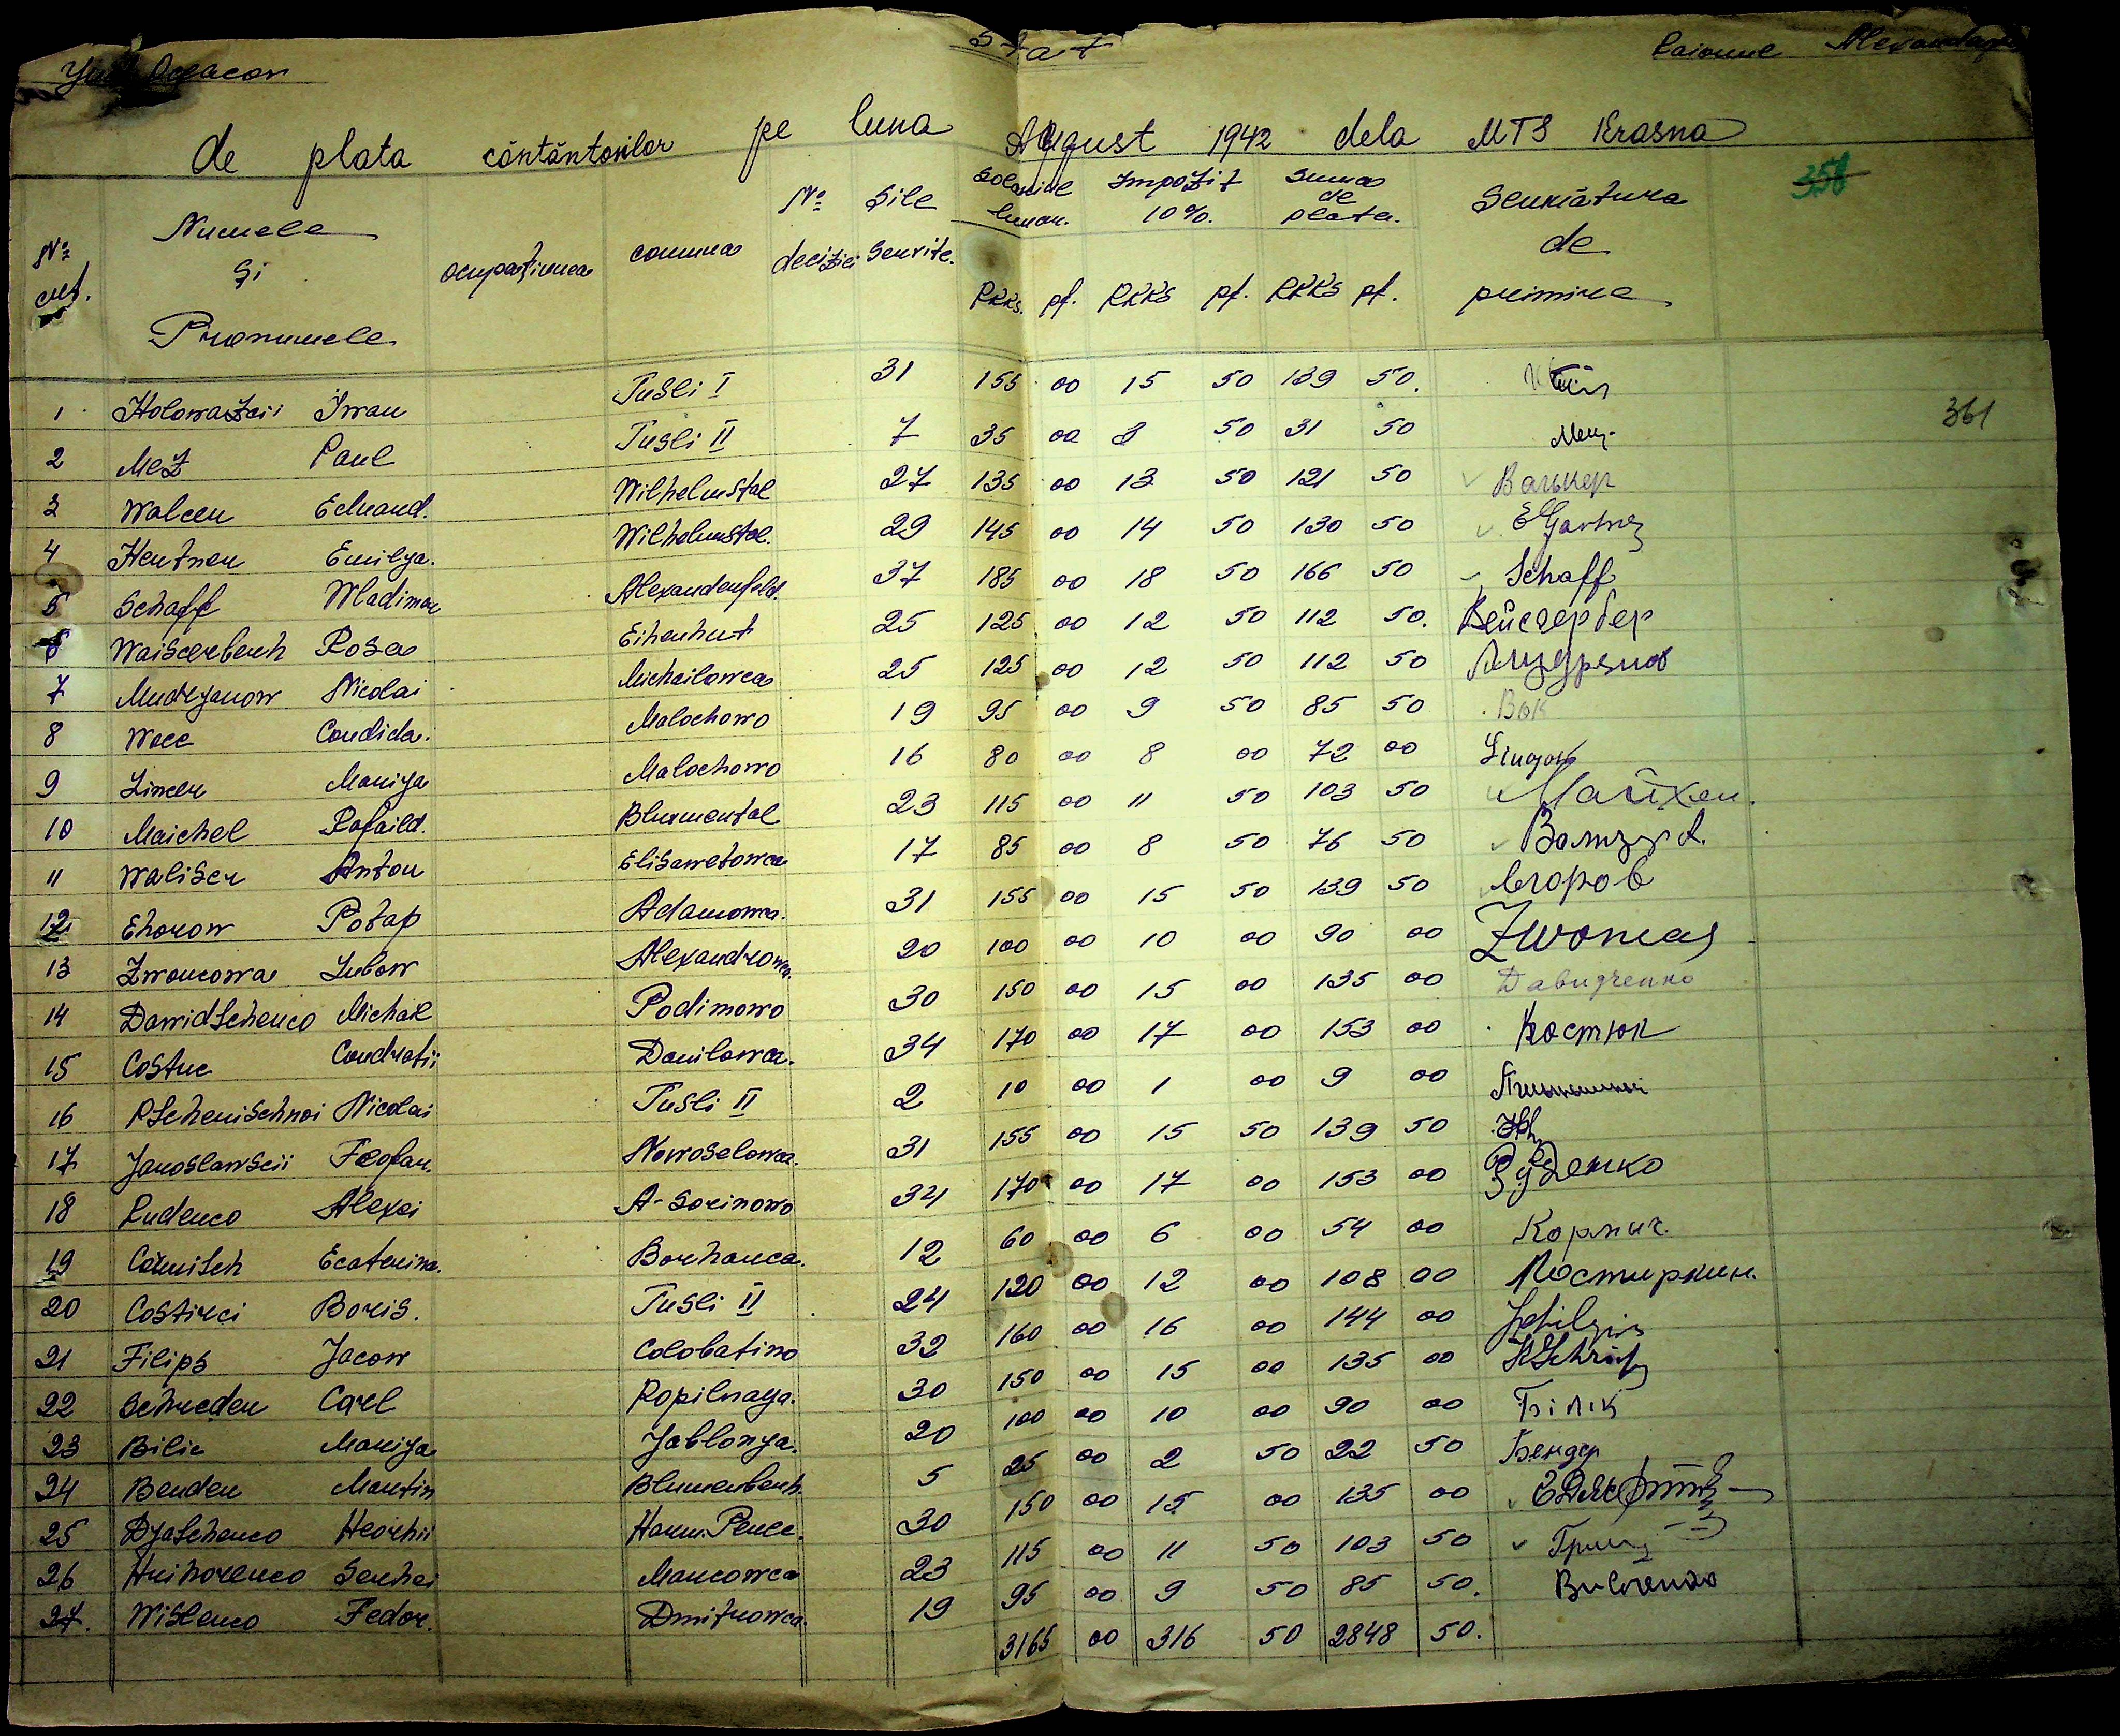 Stat
Jud. Oceacov Raionul
de plata cântăntorilor pe luna August 1942 dela MTS Krasna
358
№ crt. Numele și Pronumele ocupațiunea comuna № deciziei Zile servite. Solariul lunar. RKKS. pf. Impozit 10%. RKKS pf. Suma de plata. RKKS pf. Semnătura de primire
361
1 Holowazcii Iwan Tusli I 31 155 00 15 50 139 50.
2 Mez Paul Tusli II 7 35 00 3 50 31 50 Мец
3 Walcer Eduard. Wilhelmstal 27 135 00 13 50 121 50 Валькер
4 Hertner Emilya. Wilhelmstal. 29 145 00 14 50 130 50 EGartner
5 Schaff Wladimar Alexanderfeld. 37 185 00 18 50 166 50 Schaff
6 Waiscerberh Rosa Eihenhut 25 125 00 12 50 112 50. Вейсгербер
7 Mudryanow Nicolai Michailowca 25 125 00 12 50 112 50
8 Wocc Condida. Malochowo 19 95 00 9 50 85 50 Вок
9 Zincer Mariya Malochowo 16 80 00 8 00 72 00
10 Maichel Rafaild. Blumental 23 115 00 11 50 103 50 Майхел.
11 Waliser Anton Elisawetowca 17 85 00 8 50 76 50
12 Ehorow Potap Adamowca. 31 155 00 15 50 139 50 Егоров
13 Zwoncowa Lubow Alexandrowca. 20 100 00 10 00 90 00
14 Dawidschenco Michail Podimowo 30 150 00 15 00 135 00 Давидченко
15 Costuc Condratii Danilowca. 34 170 00 17 00 153 00 Костюк
16 Pschenischnoi Nicolai Tusli II 2 10 00 1 00 9 00
17 Jaroslawscii Feofan. Nowoselowca. 31 155 00 15 50 139 50
18 Rudenco Alexei A-Sorinowo 34 170 00 17 00 153 00 Руденко
19 Cornitsch Ecaterina. Borhanca. 12 60 00 6 00 54 00 Корнич.
20 Costirci Boris. Tusli II 24 120 00 12 00 108 00 Костиркин.
21 Filips Jacow Colobatino 32 160 00 16 00 144 00
22 Schreder Carl Popilnaya. 30 150 00 15 00 135 00
23 Bilic Mariya Jablonya. 20 100 00 10 00 90 00 Білік
24 Bender Martin Blumenberh 5 25 00 2 50 22 50 Бендер
25 Dyaschenco Heorhii 30 150 00 15 00 135 00
26 Hrihorenco Serhei Marcowca 23 115 00 11 50 103 50
27. Wislenco Fedor. Dmitrowca. 19 95 00 9 50 85 50.
3165 00 316 50 2848 50.